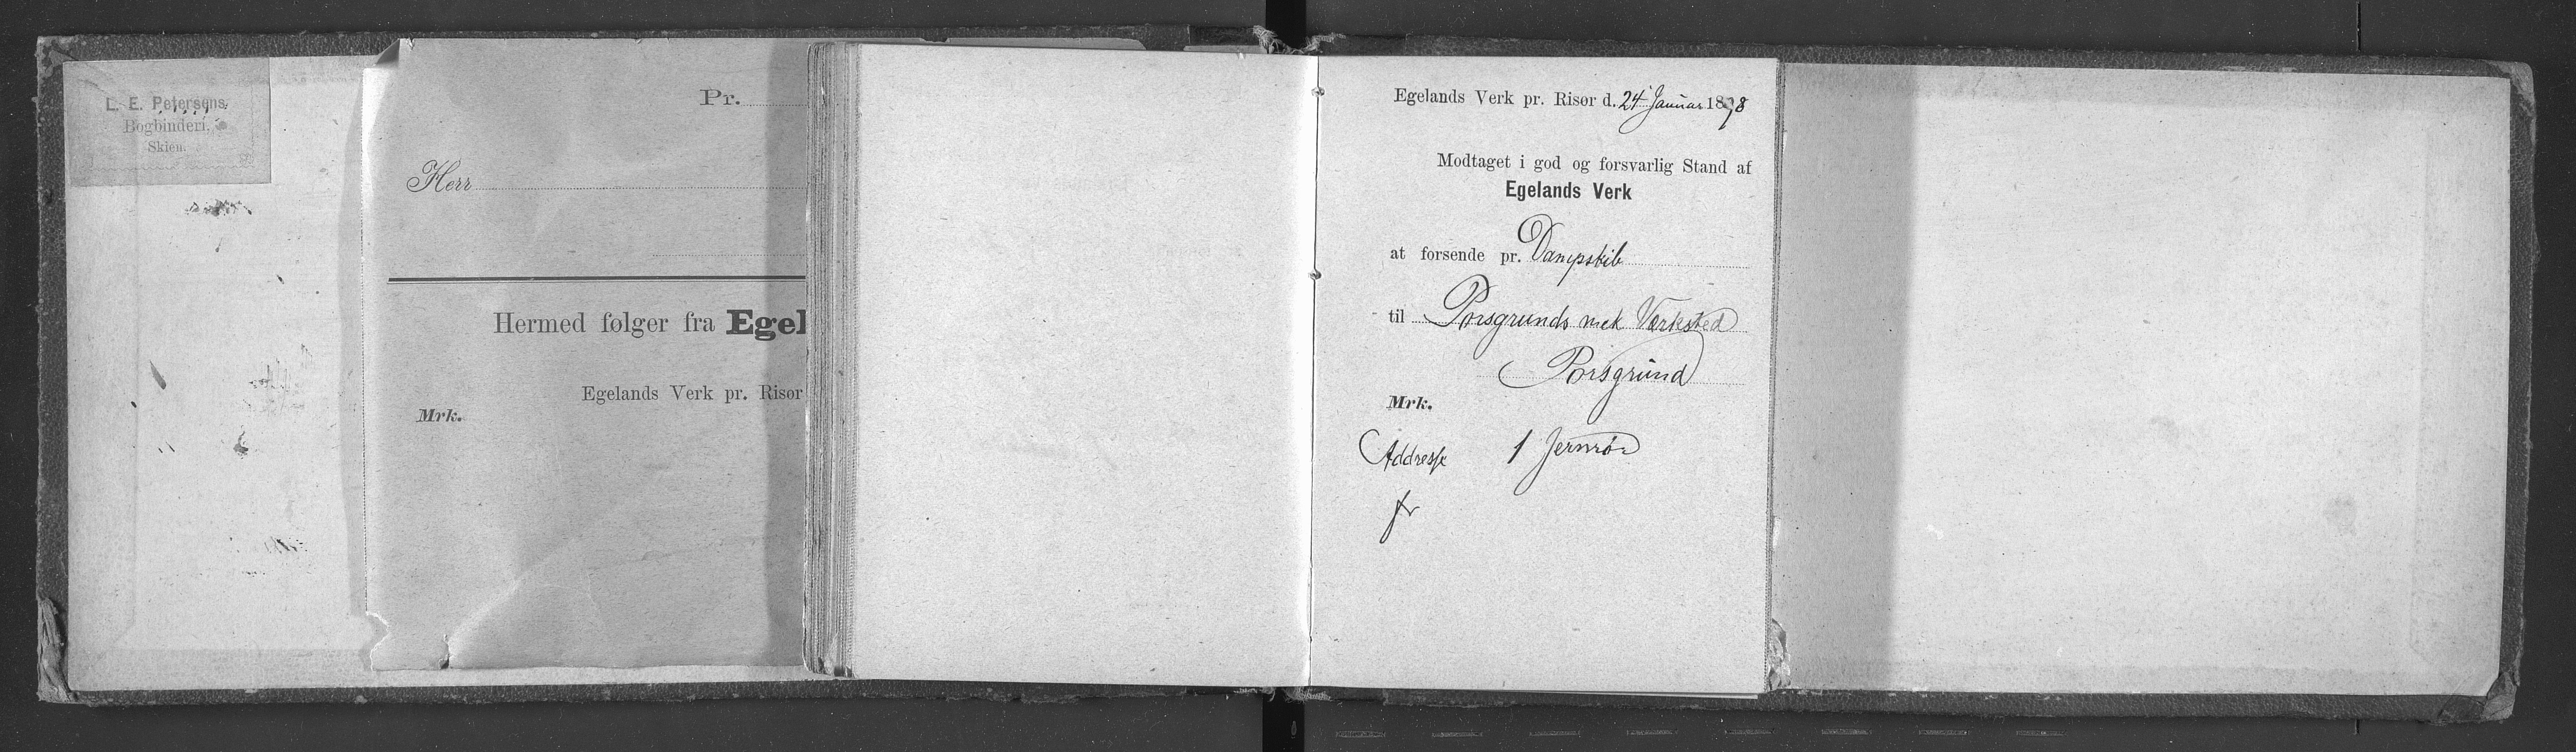 L. E. Petersens
Bogbinderi,
Skien.
Pr.
Herr
Hermed følger fra Egel
Egelands Verk pr. Risør
Mrk.
Egelands Verk pr. Risør d. 24 Januar 1898
Modtaget i god og forsvarlig Stand af
Egelands Verk
at forsende pr. Dampskib
til Porsgrunds mek Værksted
Porsgrund
Mrk.
Addresse 1 Jernrør
fr